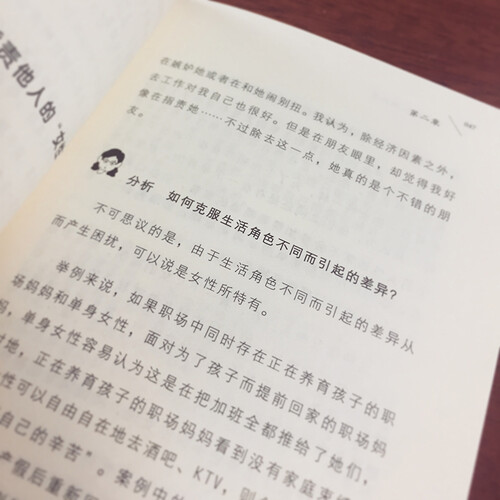 责他人的“女
第二章 047
在嫉妒她或者在和她闹别扭。我认为，除经济因素之外，
去工作对我自己也很好。但是在朋友眼里，却觉得我好
像在指责她……不过除去这一点，她真的是个不错的朋
友。
分析 如何克服生活角色不同而引起的差异？
不可思议的是，由于生活角色不同而引起的差异从
而产生困扰，可以说是女性所特有。
举例来说，如果职场中同时存在正在养育孩子的职
场妈妈和单身女性，面对为了孩子而提前回家的职场妈
妈，单身女性容易认为这是在把加班全都推给了她们，
地，正在养育孩子的职场妈妈看到没有家庭束
性可以自由自在地去酒吧、KTV，则
自己的辛苦”。案例中的
产假后重新